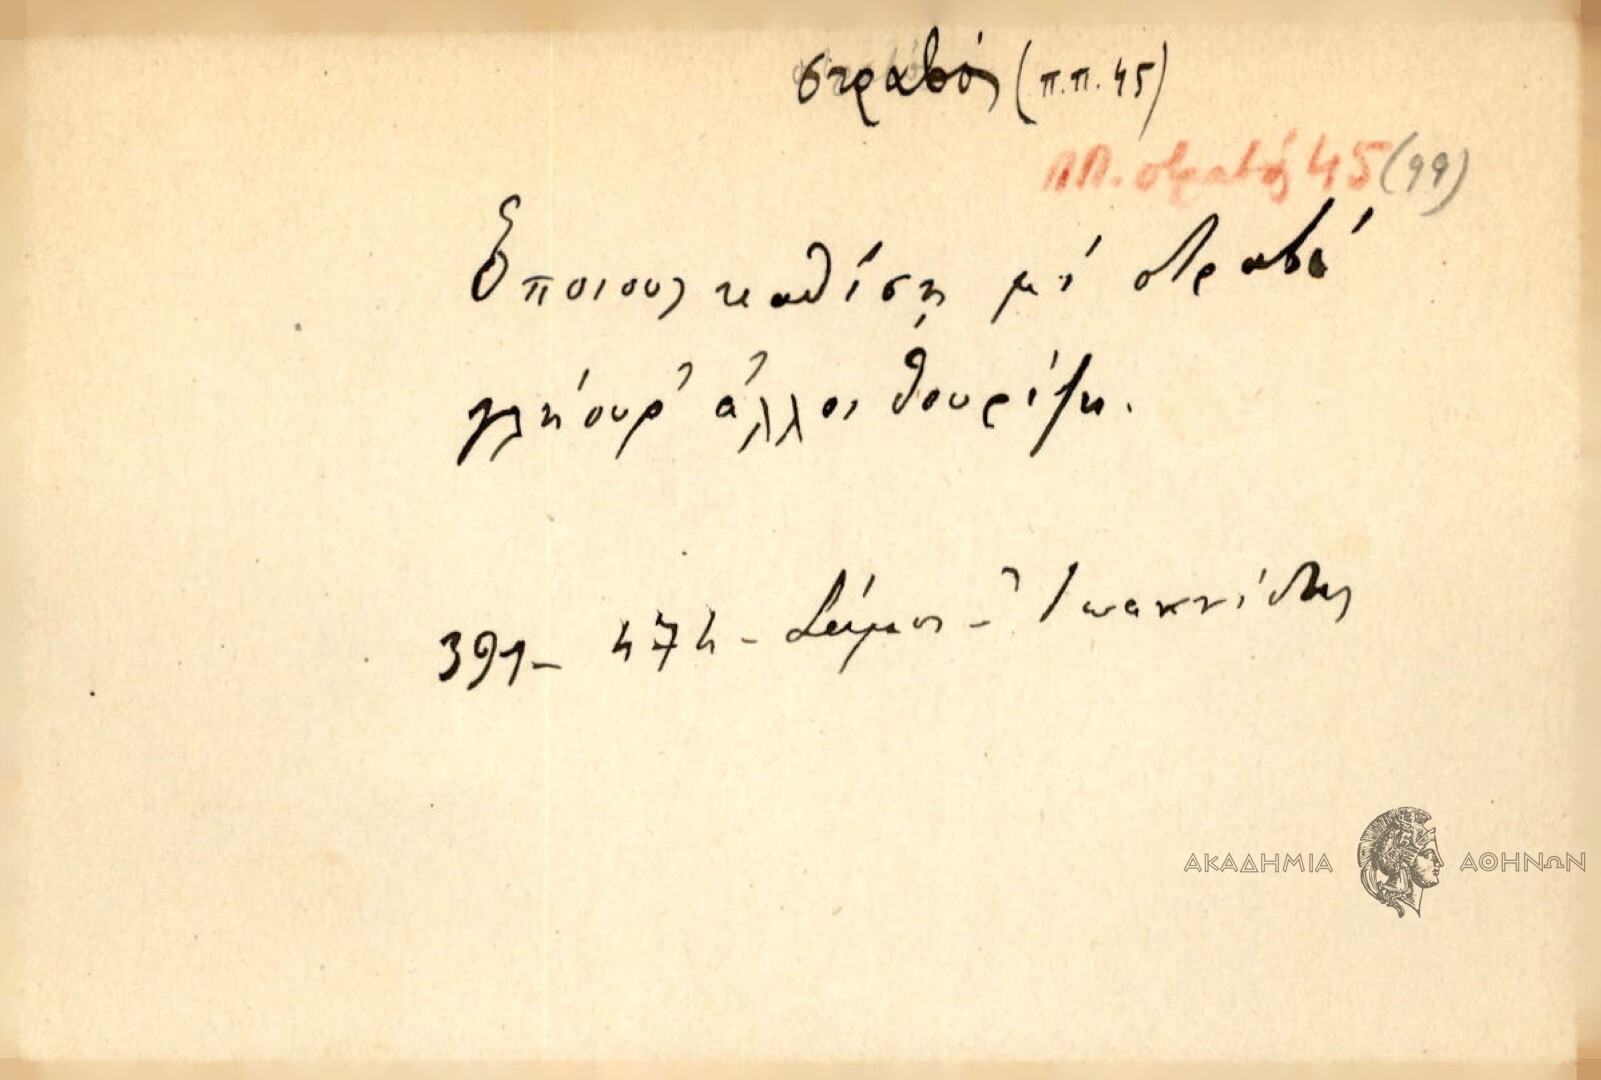 στραβός (π.π. 45)
ΠΠ. στραβός 45 (99)
Όποιους καθίση μέ στραβό
γλήουρ' άλλοι θουρίζη.
391 - 474 - Σάμος - Ἰωαννίδης
ΑΚΑΔΗΜΙΑ ΑΘΗΝΩΝ